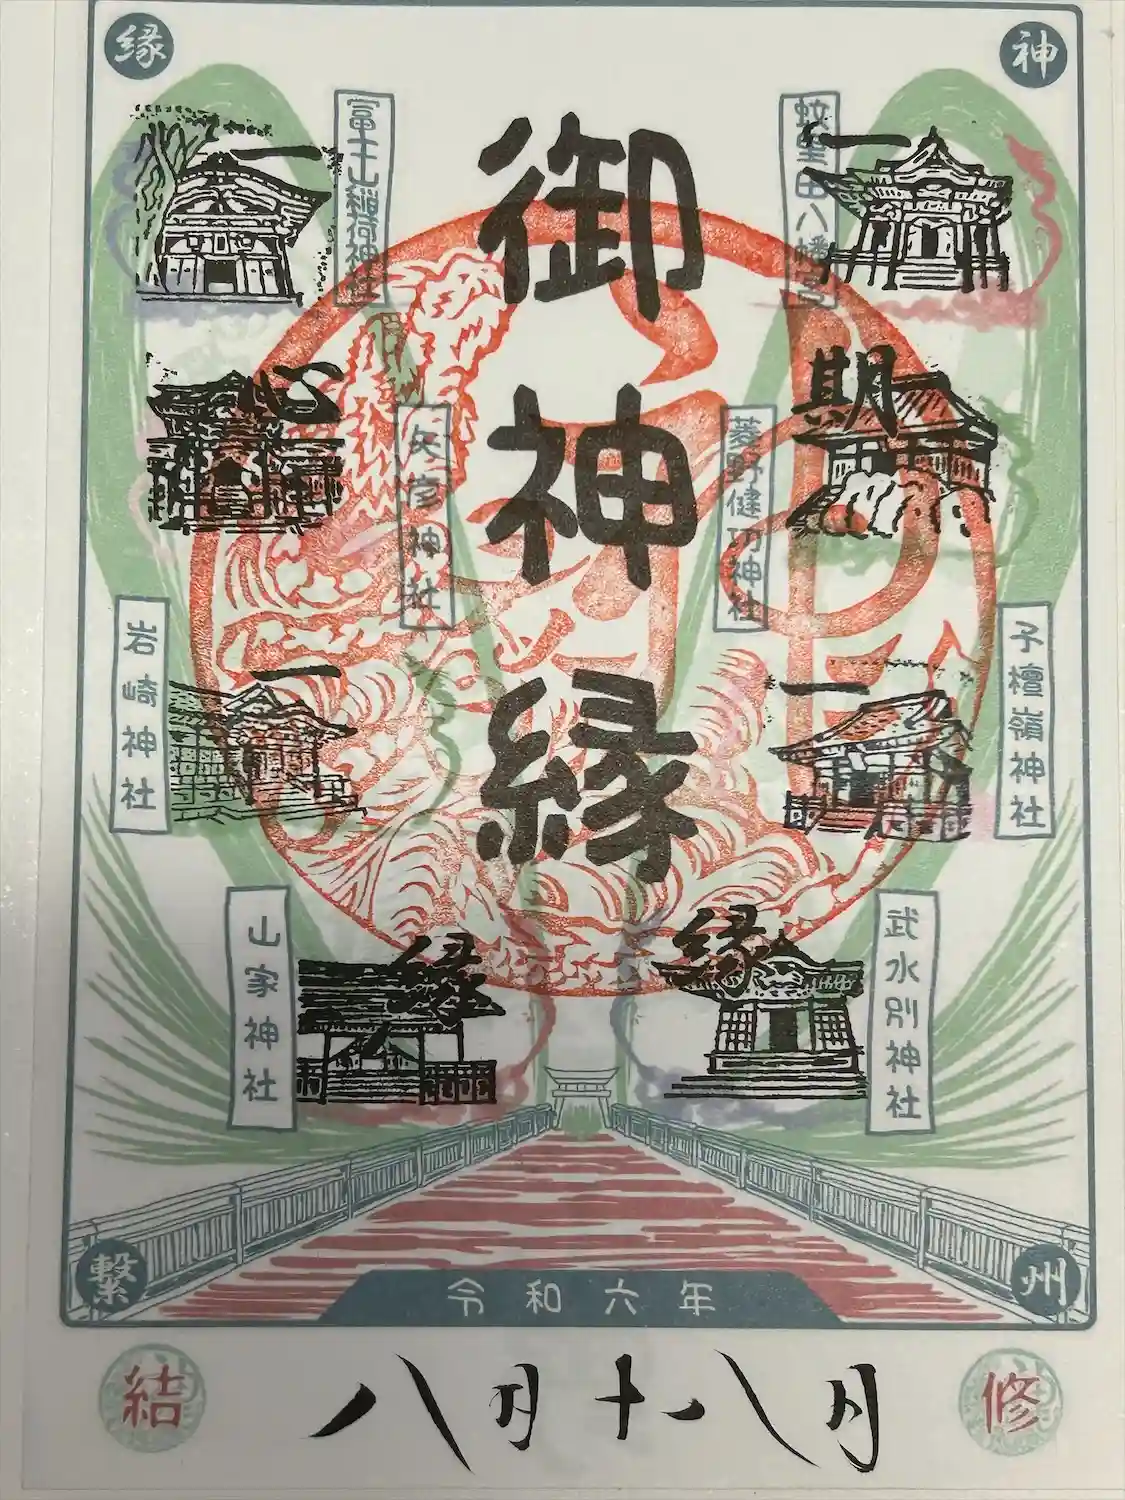 神
縁
御神縁
蚊里田八幡宮
一
富士山稲荷神社
一
菱野健功神社
期
矢彦神社
心
子檀嶺神社
一
岩崎神社
一
武水別神社
縁
山家神社
縁
州
繋
令和六年
修
八月十八月
結